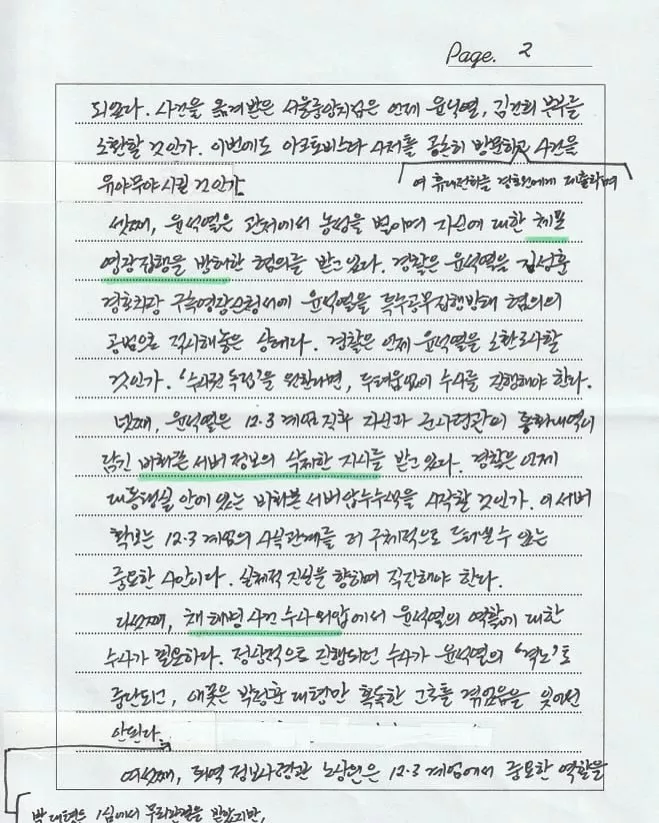 Page. 2
되었다. 사건을 옮겨받은 서울중앙지검은 언제 윤석열, 김건희 부부를
소환할 것인가. 이번에도 아크로비스타 사저를 공손히 방문하고 사건을
유야무야시킬 것인가
여 휴대전화는 경호원에게 제출하며
셋째, 윤석열은 관저에서 농성을 벌이며 자신에 대한 체포
영장집행을 방해한 혐의를 받고 있다. 경찰은 윤석열을 김성훈
경호차장 구속영장신청서에 윤석열을 특수공무집행방해 혐의의
공범으로 적시해놓은 상태다. 경찰은 언제 윤석열을 소환조사할
것인가. '수사권 독립'을 원한다면, 두려움없이 수사를 진행해야 한다.
넷째, 윤석열은 12.3 계엄 직후 자신과 군사령관의 통화내역이
담긴 비화폰 서버 정보의 삭제한 지시를 받고 있다. 경찰은 언제
대통령실 안에 있는 비화폰 서버 압수수색을 시작할 것인가. 이 서버
확보는 12.3 계엄의 사실관계를 더 구체적으로 드러낼 수 있는
중요한 사안이다. 실체적 진실을 향하여 직진해야 한다.
다섯째, 채 해병 사건 수사 외압에서 윤석열의 역할에 대한
수사가 필요하다. 정상적으로 진행되던 수사가 윤석열의 '격노'로
중단되고, 애꿎은 박정훈 대령만 혹독한 고초를 겪었음을 잊어선
안된다.
여섯째, 퇴역 정보사령관 노상원은 12.3 계엄에서 중요한 역할을
박 대령은 1심에서 무죄판결을 받았지만,